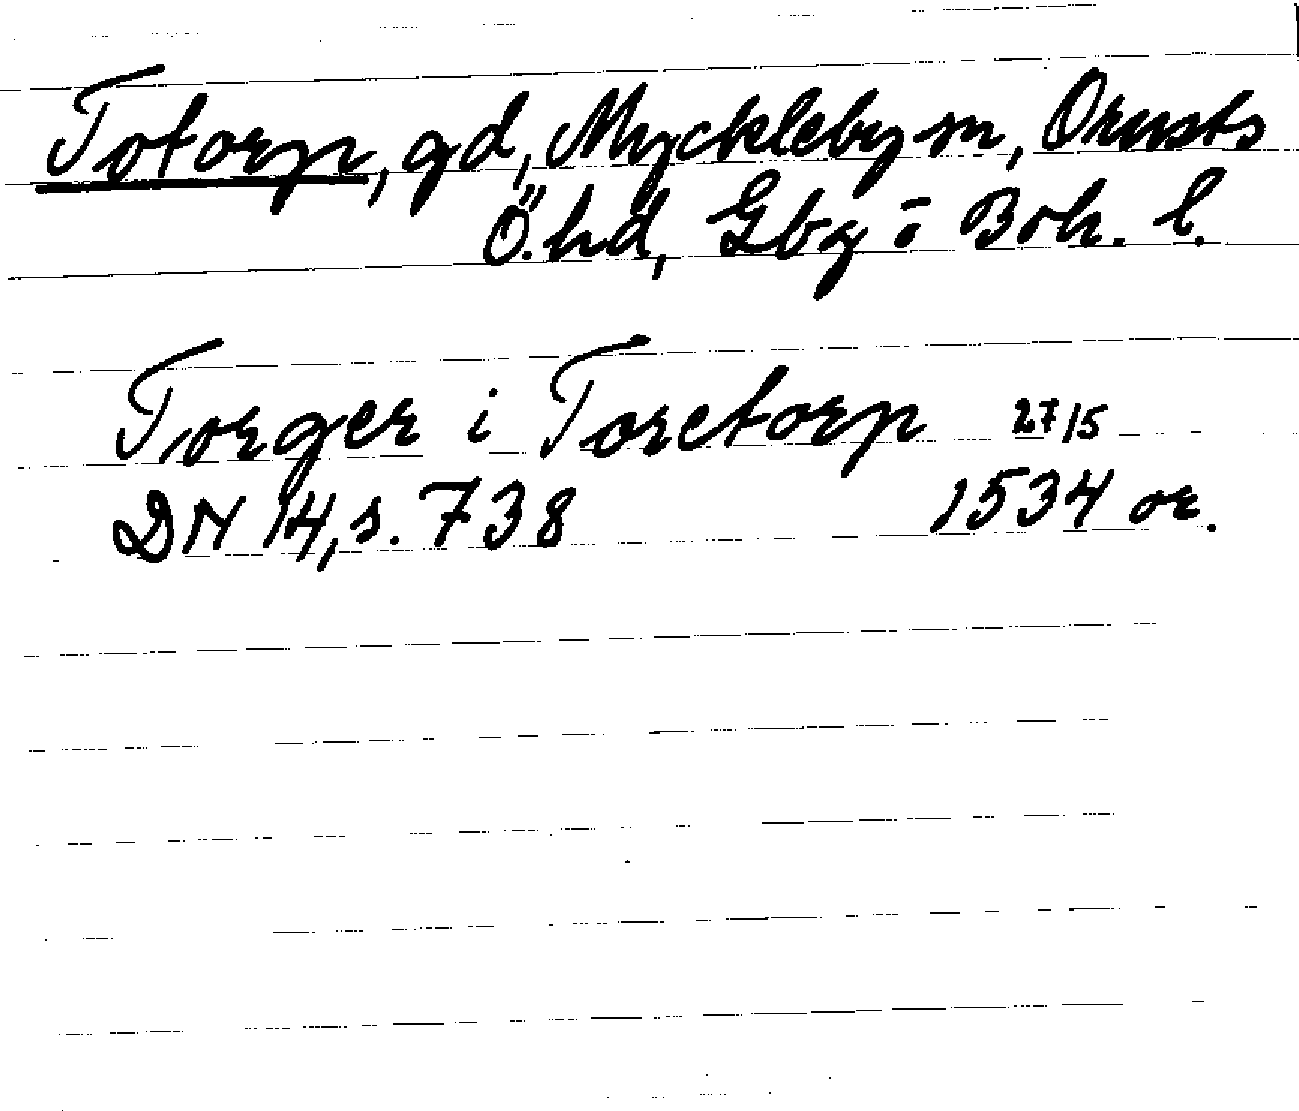 Totorp, gd, Myckleby sn, Orusts
Ö. hd, Gbg o Boh. l.
Torger i Toretorp 27/5
DN 14, s. 738 1534 or.